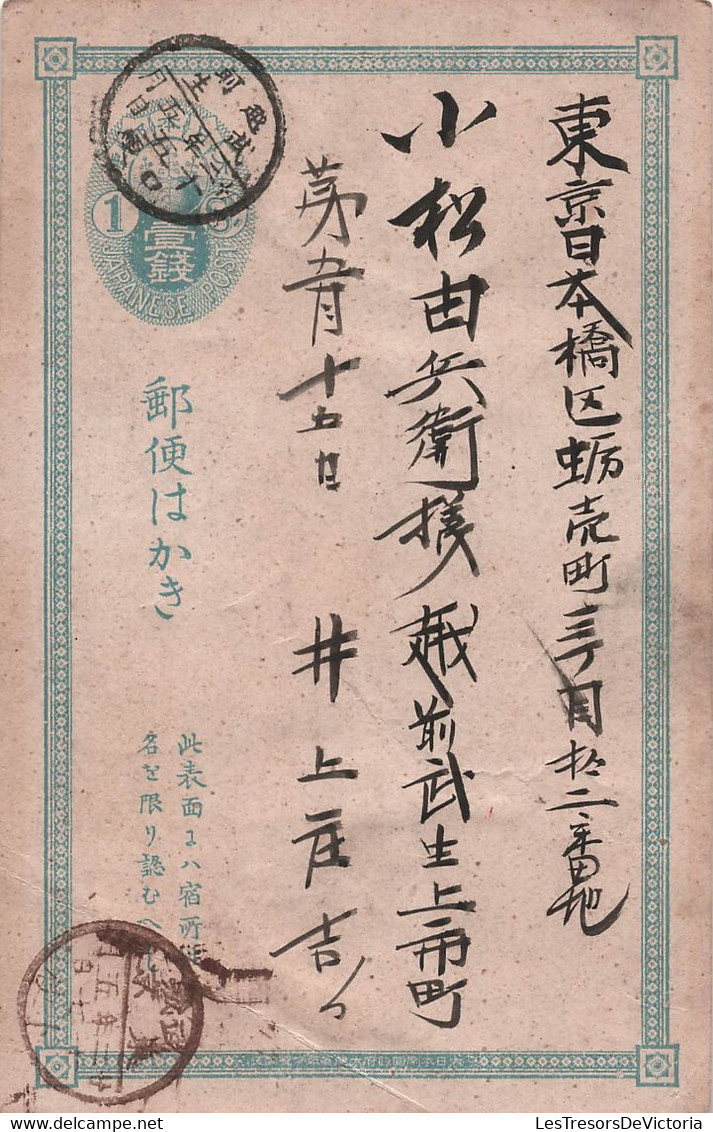 東京日本橋区蛎売町三丁目拾二番地
小松由兵衛様
越前武生上市町
第五月十五日
井上庄吉
1
壹錢
JAPANESE POST
郵便はかき
此表面ニハ宿所姓
名を限り認むへし
越前
武生
LesTresorsDeVictoria